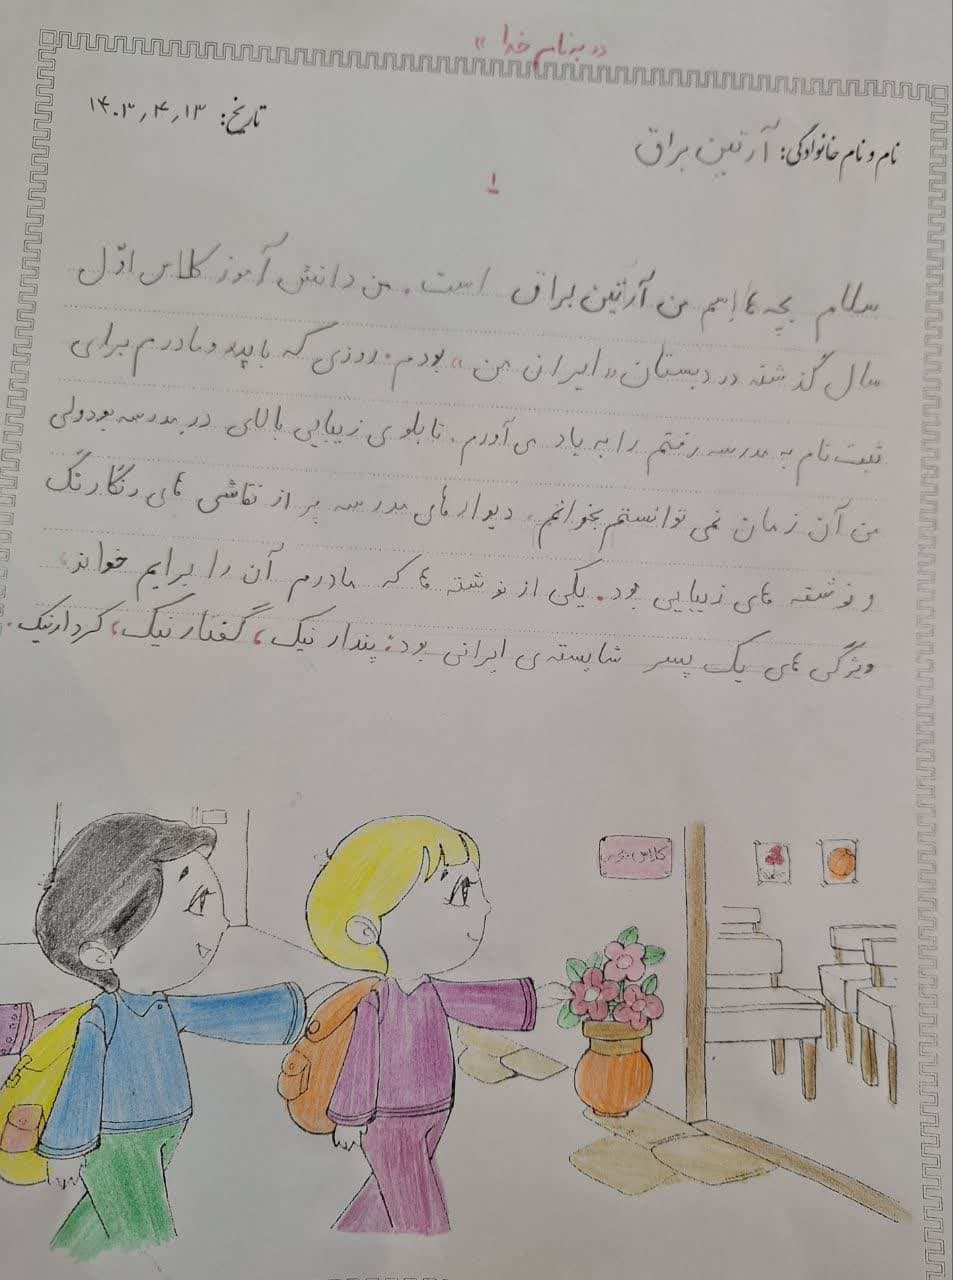 «به نام خدا»
نام و نام خانوادگی: آرتین براق
تاریخ: ۱۴۰۳,۴,۱۳
۱
سلام بچه ها اسم من آرتین براق است. من دانش آموز کلاس اوّل
سال گذشته در دبستان «ایران من» بودم. روزی که با پدر و مادرم برای
ثبت نام به مدرسه رفتم را به یاد می آورم. تابلوی زیبایی بالای در مدرسه بود ولی
من آن زمان نمی توانستم بخوانم. دیوارهای مدرسه پر از نقاشی های رنگارنگ
و نوشته های زیبایی بود. یکی از نوشته ها که مادرم آن را برایم خواند،
ویژگی های یک پسر شایسته ی ایرانی بود: پندار نیک، گفتار نیک، کردار نیک.